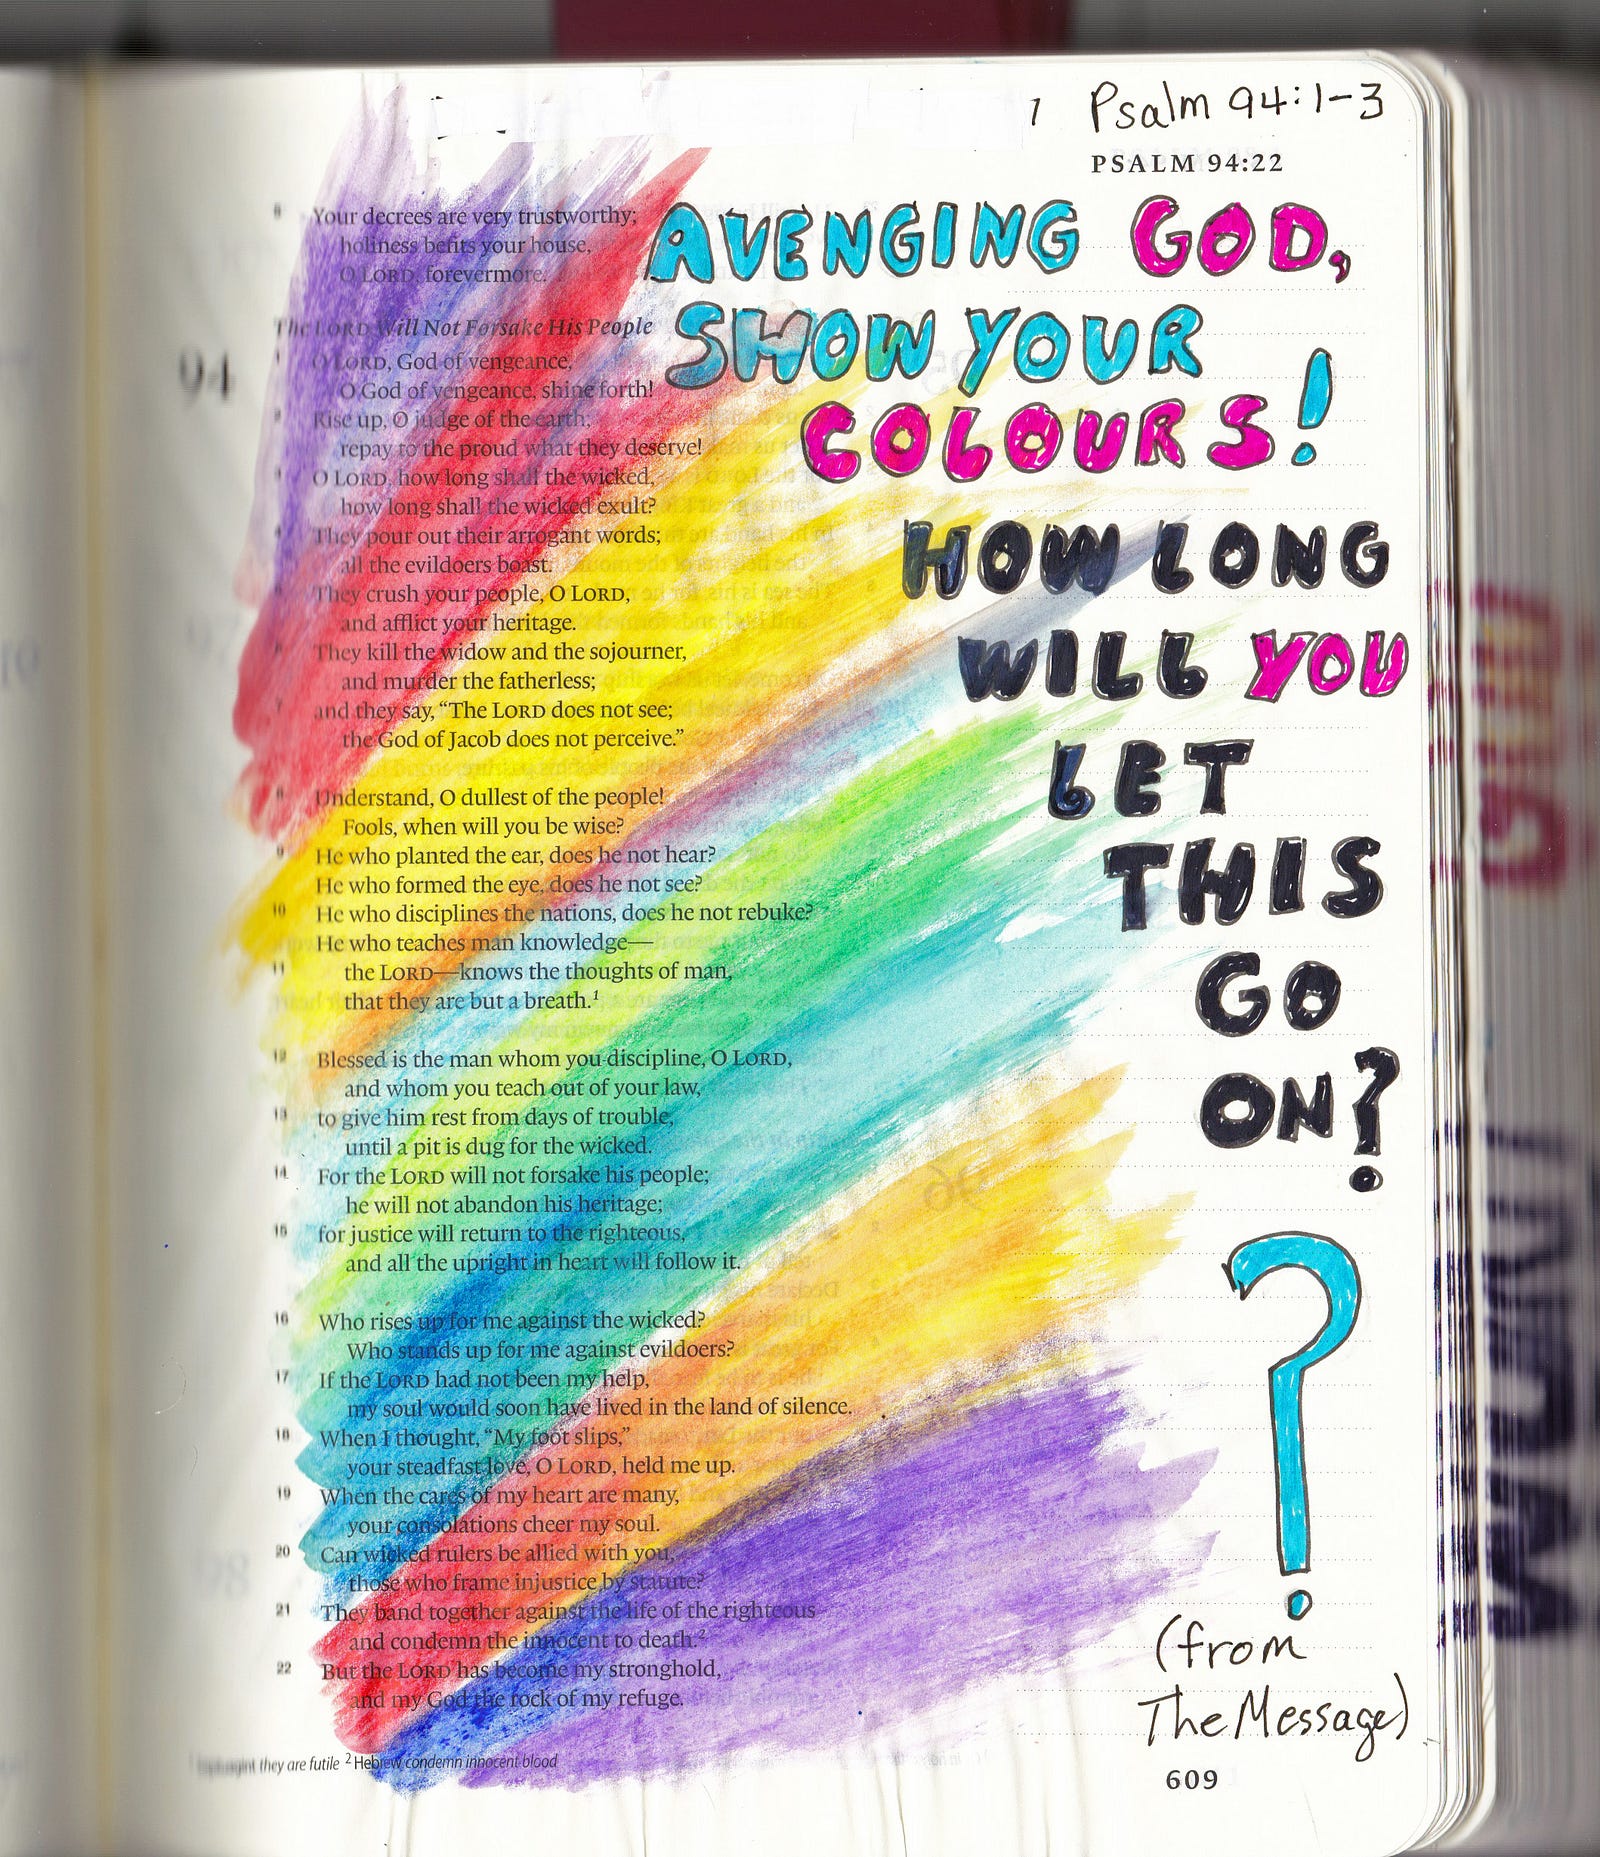 1 Psalm 94:1-3
PSALM 94:22
AVENGING GOD,
SHOW YOUR
COLOURS!
HOW LONG
WILL YOU
LET
THIS
GO
ON?
?
(from
The Message)
5 Your decrees are very trustworthy;
holiness befits your house,
O LORD, forevermore.
The LORD Will Not Forsake His People
94
1 O LORD, God of vengeance,
O God of vengeance, shine forth!
2 Rise up, O judge of the earth;
repay to the proud what they deserve!
3 O LORD, how long shall the wicked,
how long shall the wicked exult?
4 They pour out their arrogant words;
all the evildoers boast.
5 They crush your people, O LORD,
and afflict your heritage.
6 They kill the widow and the sojourner,
and murder the fatherless;
7 and they say, “The LORD does not see;
the God of Jacob does not perceive.”
8 Understand, O dullest of the people!
Fools, when will you be wise?
9 He who planted the ear, does he not hear?
He who formed the eye, does he not see?
10 He who disciplines the nations, does he not rebuke?
He who teaches man knowledge—
11 the LORD—knows the thoughts of man,
that they are but a breath.1
12 Blessed is the man whom you discipline, O LORD,
and whom you teach out of your law,
13 to give him rest from days of trouble,
until a pit is dug for the wicked.
14 For the LORD will not forsake his people;
he will not abandon his heritage;
15 for justice will return to the righteous,
and all the upright in heart will follow it.
16 Who rises up for me against the wicked?
Who stands up for me against evildoers?
17 If the LORD had not been my help,
my soul would soon have lived in the land of silence.
18 When I thought, “My foot slips,”
your steadfast love, O LORD, held me up.
19 When the cares of my heart are many,
your consolations cheer my soul.
20 Can wicked rulers be allied with you,
those who frame injustice by statute?
21 They band together against the life of the righteous
and condemn the innocent to death.2
22 But the LORD has become my stronghold,
and my God the rock of my refuge.
they are futile 2 Hebrew condemn innocent blood
609